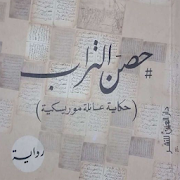 حصن التراب
#
(حكاية عائلة موريسكية)
رواية
دار العين للنشر